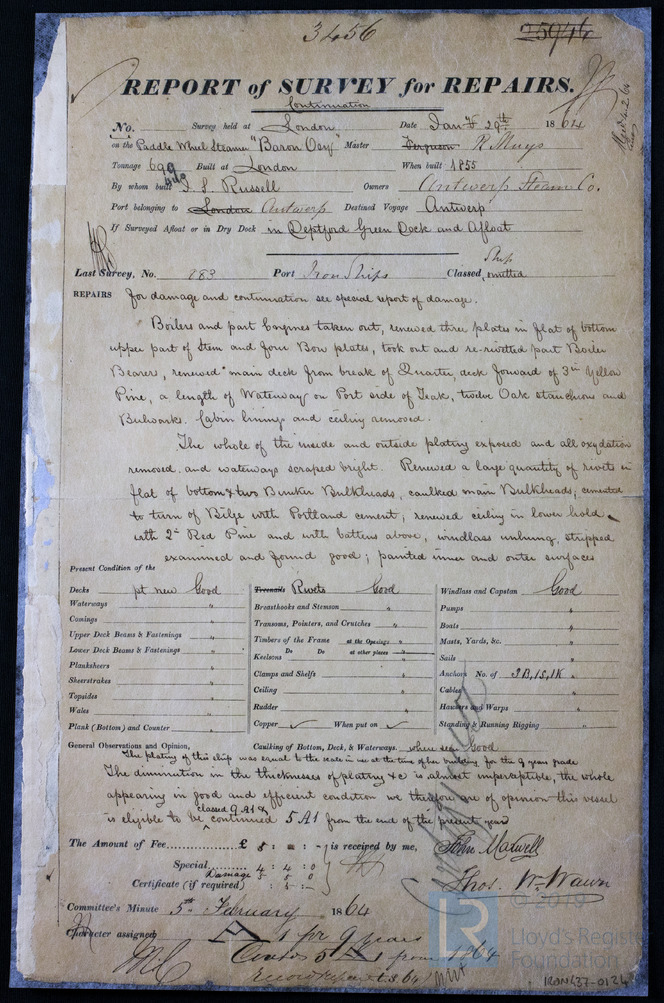 3456
25946
REPORT of SURVEY for REPAIRS.
Continuation
No. Survey held at London Date Jany 29th 1864
on the Paddle Wheel Steamer "Baron Osy" Master Ferguson R. Muys
Tonnage 699 Built at London When built 1855
By whom built J. S. Russell Owners Antwerp Steam Co.
Port belonging to London Antwerp Destined Voyage Antwerp
If Surveyed Afloat or in Dry Dock in Deptford Green Dock and Afloat
Last Survey, No. 283 Port Iron Ships Classed, Ship omitted
REPAIRS for damage and continuation see special report of damage.
Boilers and part Engines taken out, renewed three plates in flat of bottom
upper part of Stem and four Bow plates, took out and re-rivetted part Boiler
Bearer, renewed main deck from break of Quarter deck forward of 3in Yellow
Pine, a length of Waterway on Port side of Teak, twelve Oak stanchions and
Bulworks. Cabin linings and ceiling removed.
The whole of the inside and outside plating exposed and all oxydation
removed and waterways scraped bright. Renewed a large quantity of rivets in
flat of bottom & two Bunker Bulkheads, caulked main Bulkheads; cemented
to turn of Bilge with Portland cement; renewed ceiling in lower hold
with 2in Red Pine and with battens above, windlass unhung, stripped
examined and found good; painted inner and outer surfaces
Present Condition of the
Decks pt new Good
Waterways "
Comings "
Upper Deck Beams & Fastenings "
Lower Deck Beams & Fastenings "
Planksheers "
Sheerstrakes "
Topsides "
Wales "
Plank (Bottom) and Counter "
Treenails Rivets Good
Breasthooks and Stemson "
Transoms, Pointers, and Crutches "
Timbers of the Frame at the Openings "
Do Do at other places "
Keelsons "
Clamps and Shelfs "
Ceiling "
Rudder "
Copper ✓ When put on ✓
Windlass and Capstan Good
Pumps "
Boats "
Masts, Yards, &c. "
Sails "
Anchors No. of 3B, 1S, 1K "
Cables "
Hawsers and Warps "
Standing & Running Rigging "
General Observations and Opinion, Caulking of Bottom, Deck, & Waterways. where seen Good
The plating of this ship was equal to the scale in use at the time of her building for the 9 year grade
The diminution in the thicknesses of plating &c is almost imperceptible, the whole
appearing in good and efficient condition we therefore are of opinion this vessel
is eligible to be classed 9 A1 & continued 5 A1 from the end of the present year
The Amount of Fee £ 5 : = : - is received by me, John Maxwell
Special 4 : 4 : 0
Damage 5 5 0
Certificate (if required) : 5 : - Thos. Wm Wawn
Committee's Minute 5th February 1864
Character assigned A 1 for 9 years
Contd 5 A 1 from 1864
© 2019
LR
Lloyd's Register
Foundation
IRON437-0124